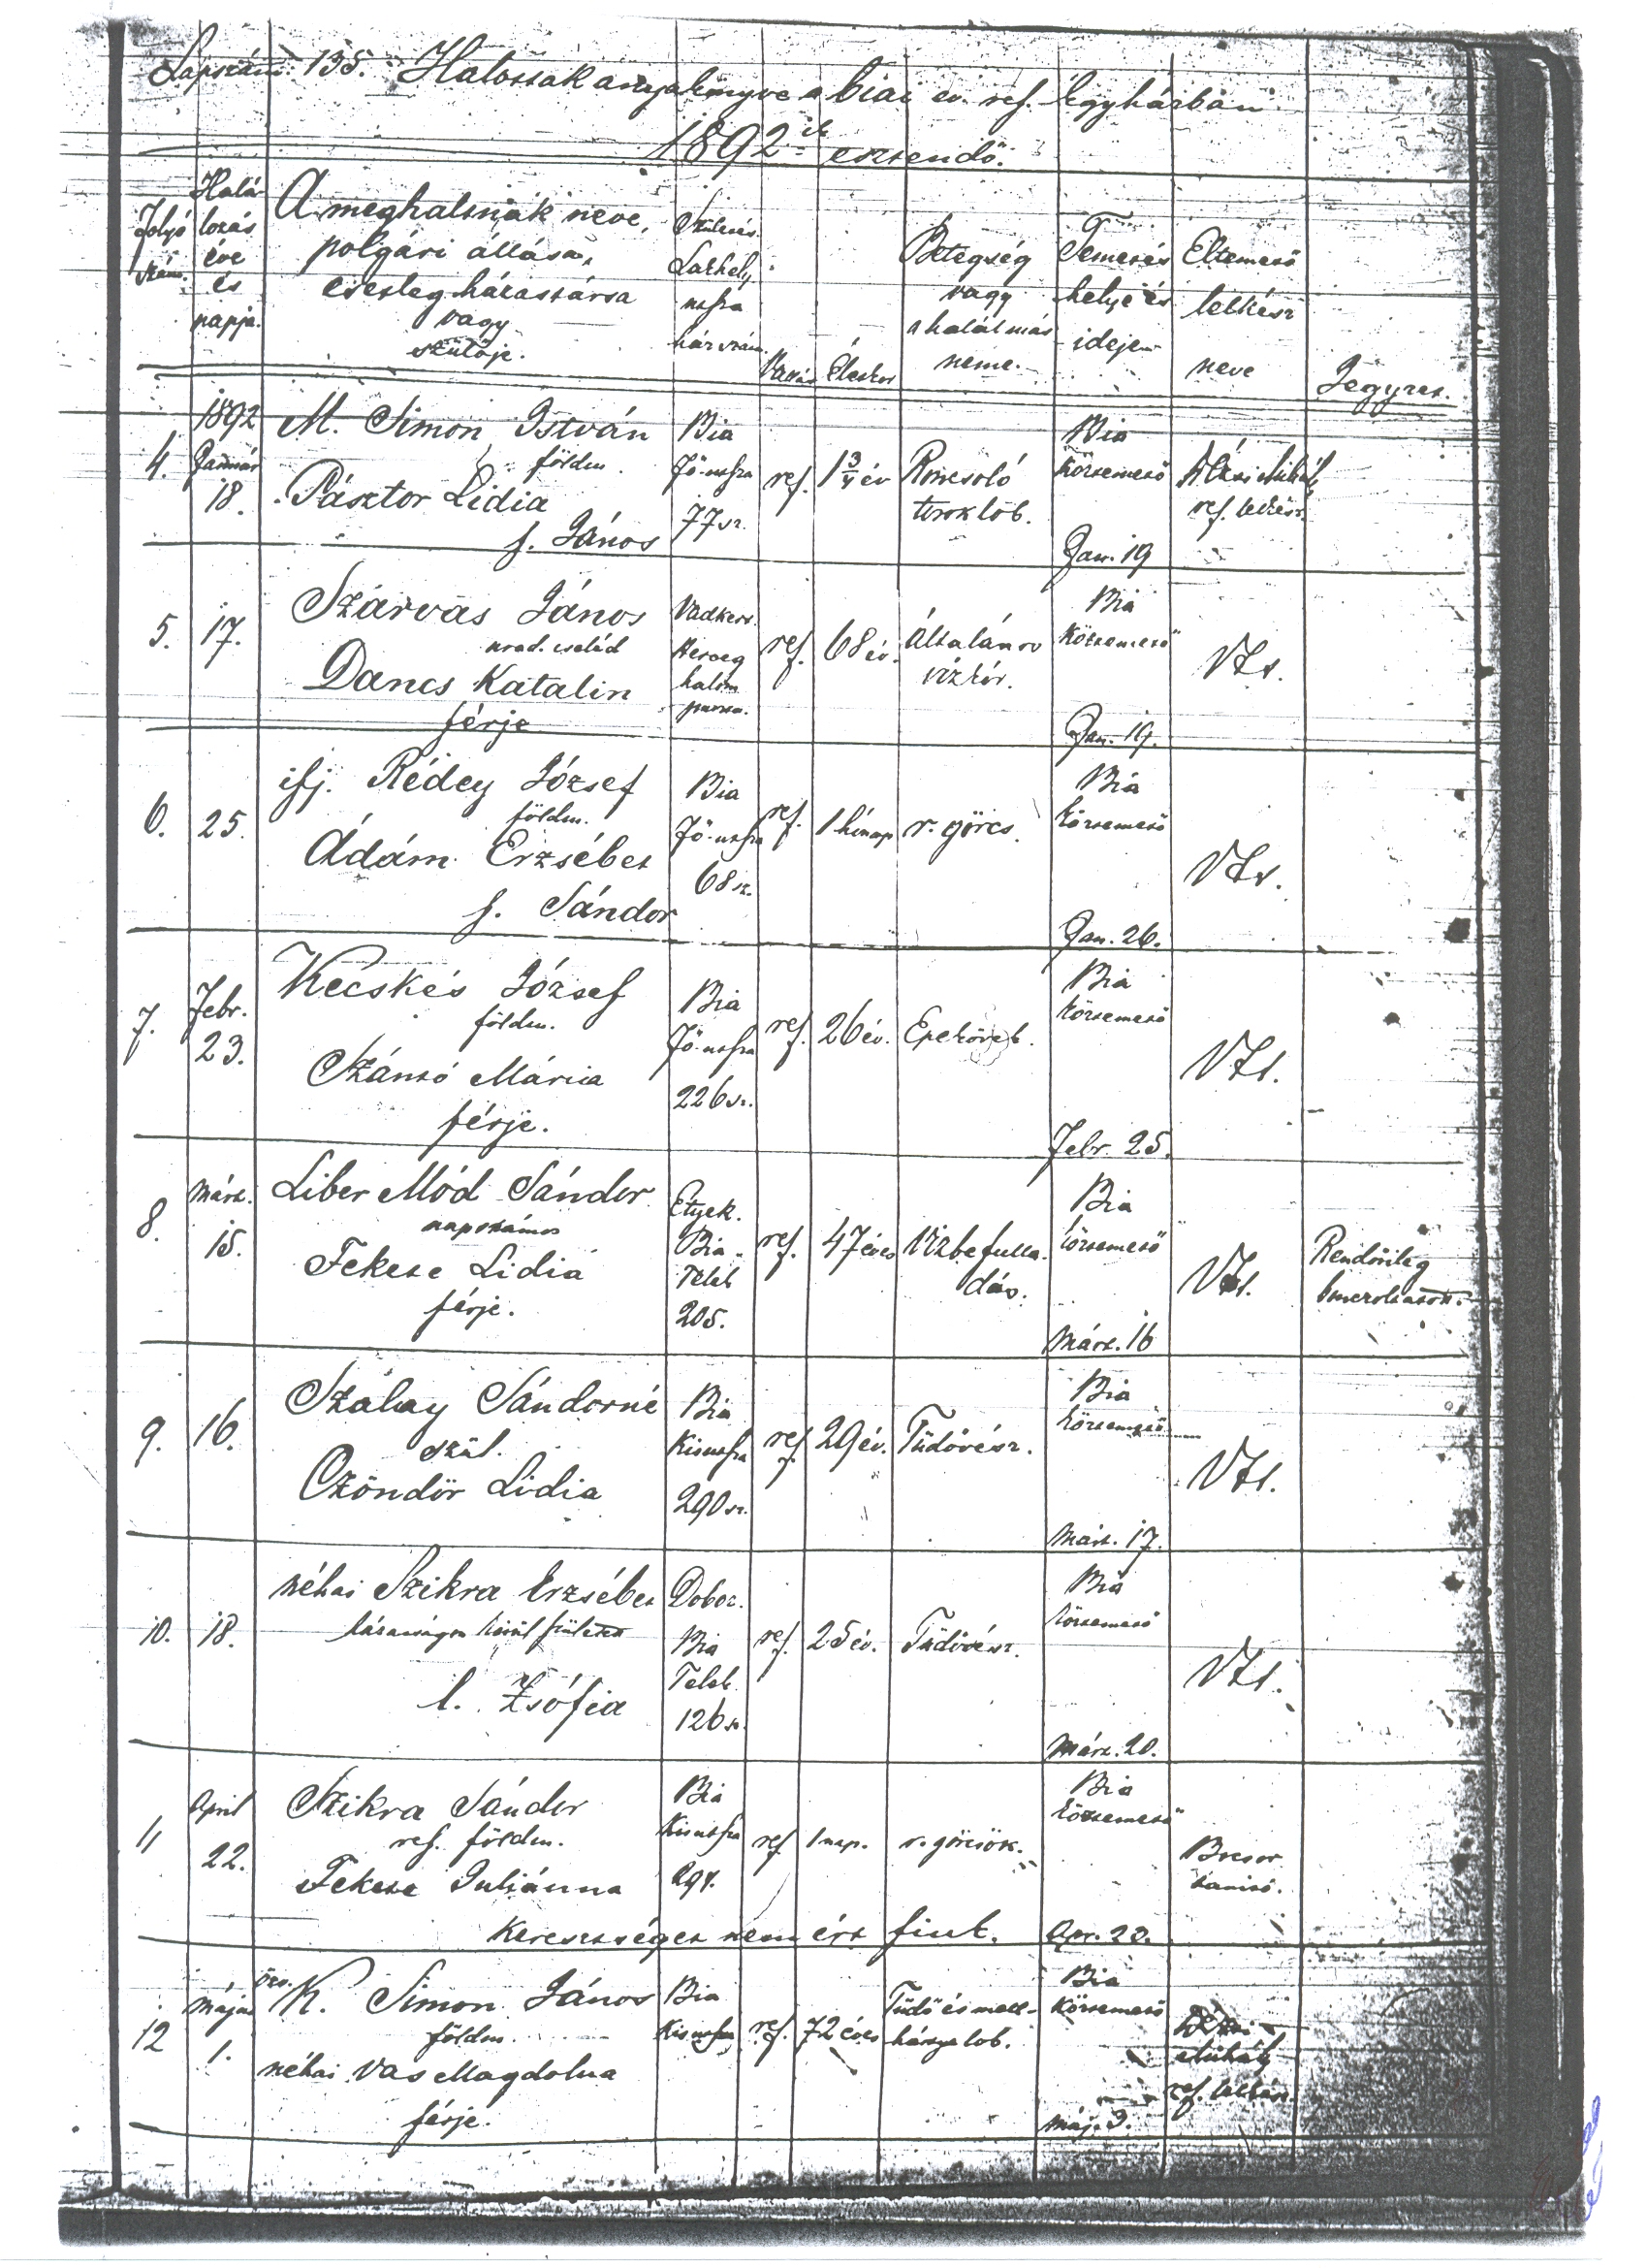 Lapszám: 135. Halottak anyakönyve a biai ev. ref. Egyházban
1892ik esztendő.
Folyó szám.
Halálozás éve és napja.
A meghaltnak neve, polgári állása, esetleg házastársa vagy szülője.
Születés Lakhely utsza házszám.
Vallás
Életkor
Betegség vagy a halálozás neme.
Temetés helye és ideje
Eltemető lelkész neve
Jegyzet.
4.
1892 Január 18.
M. Simon István
földm.
Pásztor Lidia
f. János
Bia
Fő-utsza
77 sz.
ref.
1 3/4 év
Roncsoló
toroklob.
Bia
köztemető
Jan. 19
Mihály
ref. lelkész
5.
17.
Szarvas János
urad. cseléd
Dancs Katalin
férje
Vadkert.
Herceg
halom
puszta.
ref.
68 év.
Általános
vízkór.
Bia
köztemető
Jan. 19.
6.
25.
ifj. Rédey József
földm.
Ádám Erzsébet
f. Sándor
Bia
Fő-utsza
68 sz.
ref.
1 hónap
r. görcs.
Bia
köztemető
Jan. 26.
7.
Febr.
23.
Kecskés József
földm.
Szántó Mária
férje.
Bia
Fő-utsza
226 sz.
ref.
26 év.
Bia
köztemető
Febr. 25.
8.
Márt.
15.
Liber Mód Sándor
napszámos
Fekete Lidia
férje.
Etyek.
Bia
Telek
205.
ref.
47 éves
Vizbe fulla-
dás.
Bia
köztemető
Márt. 16
Rendőrileg
9.
16.
Szalay Sándorné
szül.
Czöndör Lidia
Bia
Kisutsza
290 sz.
ref
29 év.
Tüdővész.
Bia
köztemető
Márt. 17.
10.
18.
néhai Szikra Erzsébet
házasságon kívül született
l. Zsófia
Doboz.
Bia
Telek
126 sz.
ref.
25 év.
Tüdővész.
Bia
köztemető
Márt. 20.
11
April
22.
Szikra Sándor
ref. földm.
Fekete Juliánna
Keresztséget nem ért fiut.
Bia
Kisutsza
297.
ref
1 nap.
r. görcsök.
Bia
köztemető
Apr. 23.
tanító.
12
Május
1.
özv.
K. Simon János
földm.
néhai Vas Magdolna
férje.
Bia
Kisutsza
ref.
72 éves
Tüdő és mell-
hártya lob.
Bia
köztemető
Máj. 3.
Mihály
ref. lelkész